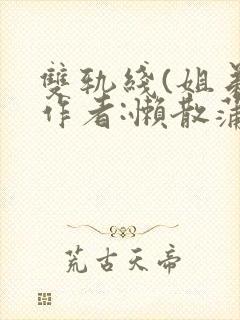 雙軌綫(姐弟
作者:懶散蒲
荒古天帝